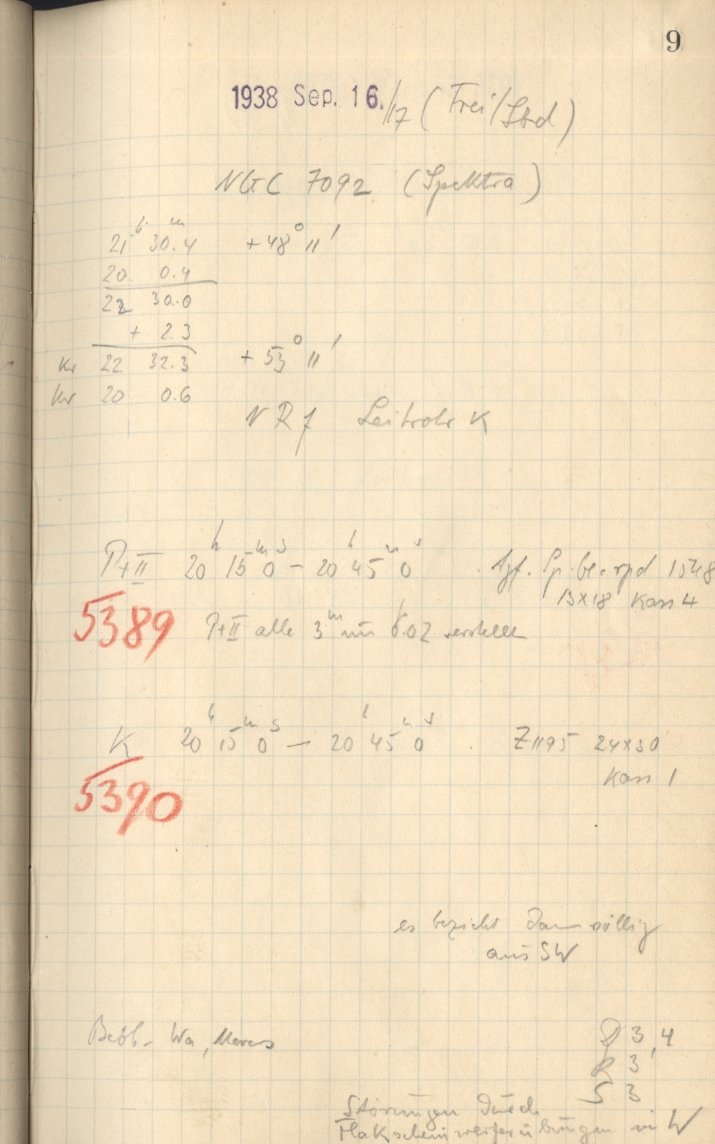 9
1938 Sep. 16./17 (Frei/Sbd)
NGC 7092 (Spektra)
21h 30.m4 +48° 11'
20 0.4
22 30.0
+ 2.3
Kr 22 32.3 +53° 11'
Wr 20 0.6
NR f Leitrohr K
P+II 20h 15m 0s – 20h 45m 0s Agf. Sp. bl. rpd 1548
13x18 Kass 4
5389 P+II alle 3m um 6.02 verstellt
K 20h 15m 0s – 20h 45m 0s Z1195 24x30
Kass 1
5390
es bezieht dann völlig
aus SW
Beob. Wa,
D 3,4
R 3
S 3
Störungen durch
Flakscheinwerferübungen in W